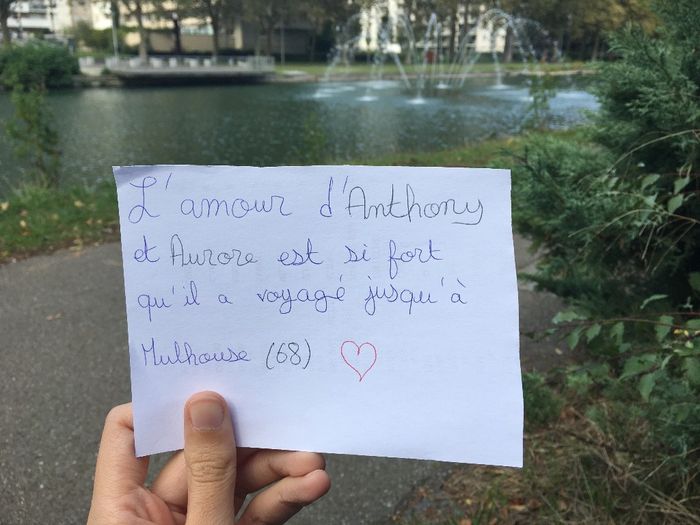 L'amour d'Anthony
et Aurore est si fort
qu'il a voyagé jusqu'à
Mulhouse (68) ♡